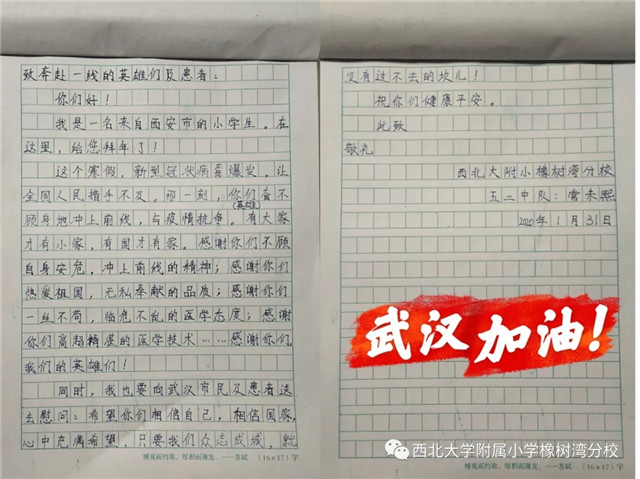 致奔赴一线的英雄们及患者：
你们好！
我是一名来自西安市的小学生。在
这里，给您拜年了！
这个寒假，新型冠状病毒爆发，让
全国人民措手不及。那一刻，你们奋不
(英雄)
顾身地冲上前线，与疫情抗争。有大家
才有小家，有国才有家。感谢你们不顾
自身安危，冲上前线的精神；感谢你们
热爱祖国，无私奉献的品质；感谢你们
一丝不苟，临危不乱的医学态度；感谢
你们高超精湛的医学技术……感谢你们，
我们的英雄们！
同时，我也要向武汉市民及患者送
去慰问：希望你们相信自己，相信国家，
心中充满希望，只要我们众志成城，就
博观而约取，厚积而薄发。——苏轼 (16×17)字
没有过不去的坎儿！
祝你们健康平安。
此致
敬礼
西北大附小橡树湾分校
五二中队：常未熙
2020年1月31日
武汉加油！
西北大学附属小学橡树湾分校
博观而约取，厚积而薄发。——苏轼 (16×17)字